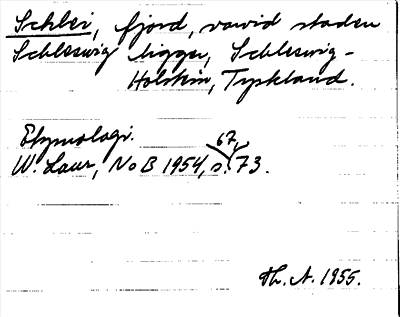 Schlei, fjord, varvid staden
Schleswig ligger, Schleswig-
Holstein, Tyskland.
Etymologi.
W. Laur, NoB 1954, s. 67, 73.
Th. A. 1955.